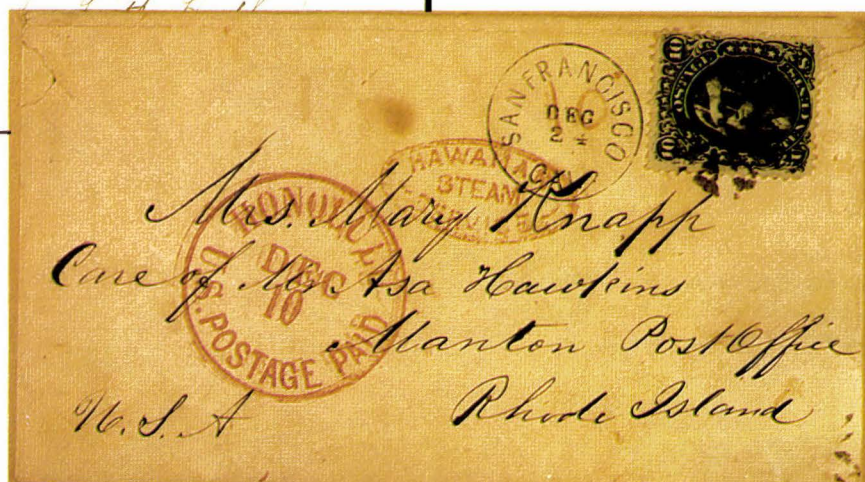 SAN FRANCISCO
DEC
2
10 10
HAWAIIAN
STEAM
SERVICE
HONOLULU
DEC
10
U.S. POSTAGE PAID
Mrs. Mary Knapp
Care of Mr Asa Hawkins
Manton Post Office
Rhode Island
U.S.A